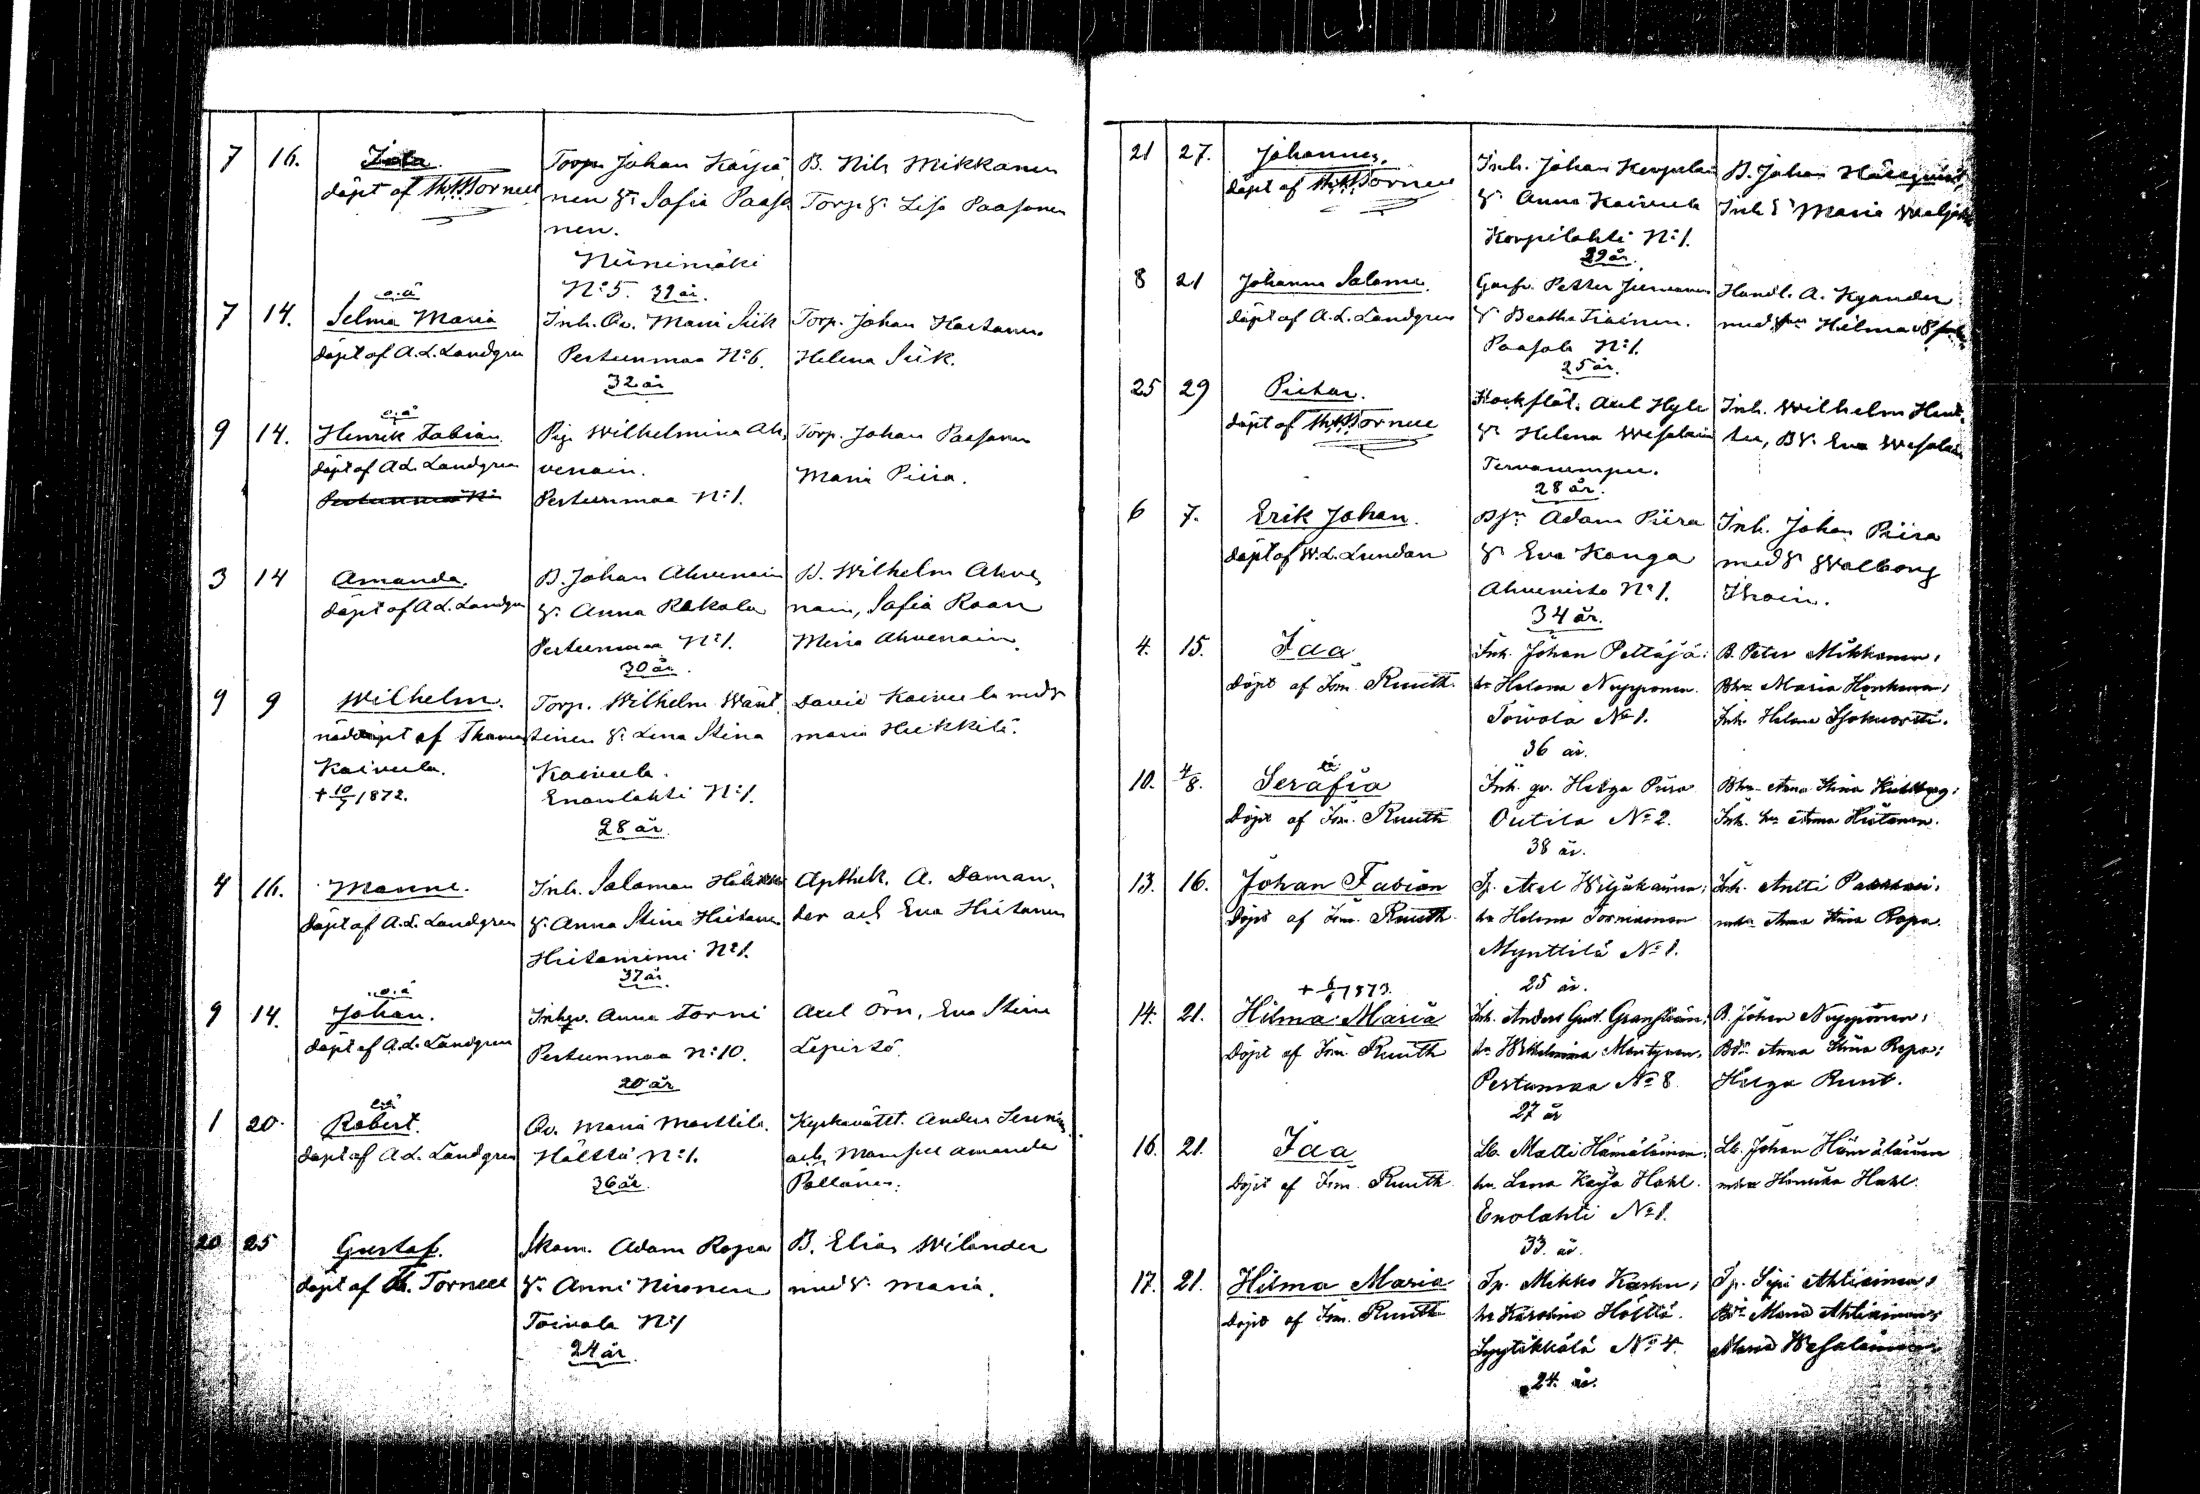 7 16.
döpt af Th. Tornell
Torp. Johan Kärjä
nen h. Sofia Paaso
nen.
Niinimäki
N:o 5. 39 år.
B. Nils Mikkanen
Torp. h. Lisa Paasonen
7 14. o.ä
Selma Maria
döpt af A.L. Landgren
Inh. Qv. Maria Siik
Pertunmaa N:o 6.
32 år
Torp. Johan Hartanen
Helena Siik.
9 14. o.ä
Henrik Fabian.
döpt af A.L. Landgren
Pig. Wilhelmina Ah
venain.
Pertunmaa N:1.
Torp. Johan Paasonen
Maria Piira.
3 14 Amanda.
döpt af A.L. Landgren
B. Johan Ahvenain
h. Anna Rekola
Pertunmaa N:1.
30 år.
B. Wilhelm Ahve
nain, Sofia
Ahvenain.
9 9 Wilhelm.
nöddöpt af Thomas
Kaivula.
+ 10/9 1872.
Torp. Wilhelm Wänt
tinen h. Lena Stina
Kaivula.
Enonlahti N:1.
28 år.
David Kaivula med h
Maria Heikkilä.
4 16. Manne.
döpt af A.L. Landgren
Inh. Salomon
h. Anna Stina Hietanen
Hietaniemi N:1.
37 år.
Apthek. A. Daman
der och Eva Hietanen
9 14. o.ä
Johan.
döpt af A.L. Landgren
Inhqv. Anna Torni
Pertunmaa N:10.
20 år
Axel Örn, Eva Stina
Lepistö.
1 20. o.ä
Robert.
döpt af A.L. Landgren
Qv. Maria Marttila.
Hölttä N:1.
36 år.
Kyrkovätet. Anders
och Mamsell Amanda
Pollänen.
20 25 Gustaf.
döpt af Th. Tornell
Skom. Adam Ropa
h. Anni Nironen
Toivola N:1
24 år.
B. Elias Wilander
med h. Maria.
21 27. Johannes.
döpt af Th. Tornell
Inh. Johan
h. Anna Kaivula
Korpilahti N:1.
29 år.
B. Johan
Inh. h. Maria
8 21 Johanna Salome.
döpt af A.L. Landgren
Garfv. Petter
h. Beatha Tiainen.
Paasola N:1.
25 år.
Handl. A. Kyander
med fru Hilma
25 29
döpt af Th. Tornell
Axel
h. Helena Wesalain
28 år.
Inh. Wilhelm
B h. Eva Wesalain
6 7. Erik Johan.
döpt af W.L. Lundan
Adam Piira
h. Eva Kanga
Ahvenisto N:1.
34 år.
Inh. Johan Piira
med h. Walborg
Ihain.
4. 15. Ida
Döpt af Ruuth.
Inh. Johan Pettäjä:
hu Helena Nupponen.
Toivola No 1.
36 år.
B. Peter Mikkonen,
Maria Honkanen,
Inh. Helena
10. 4/8. oä
Serafia
Döpt af Ruuth
Inh. qv. Helga Piira
Outila No 2.
38 år.
Anna Stina
Inh. Anna Hietanen.
13. 16. Johan Fabian
Döpt af Ruuth
Tp. Axel Wiljakainen,
hu Helena Torniainen
Mynttilä No 1.
25 år.
Inh. Antti
Anna Stina Ropa.
1873.
14. 21. Hilma Maria
Döpt af Ruuth
Inh. Anders Gust. Granström,
hu Wilhelmina Mäntynen.
Pertunmaa No 8.
27 år
B. Johan Nupponen,
Anna Stina Ropa;
Helga Ruut.
16. 21. Ida
Döpt af Ruuth.
Lb. Matti Hämäläinen.
hu. Lena Kaija Hahl.
Enolahti No 1.
33. år.
Lb. Johan Hämäläinen
Henrika Hahl.
17. 21. Hilma Maria
Döpt af Ruuth
Tp. Mikko
hu Karolina Hölttä.
Lyytikkälä No 4.
24. år.
Tp. Ahtiainen,
Maria Ahtiainen,
Maria Wesalainen